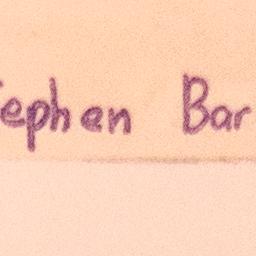 tephen Bar